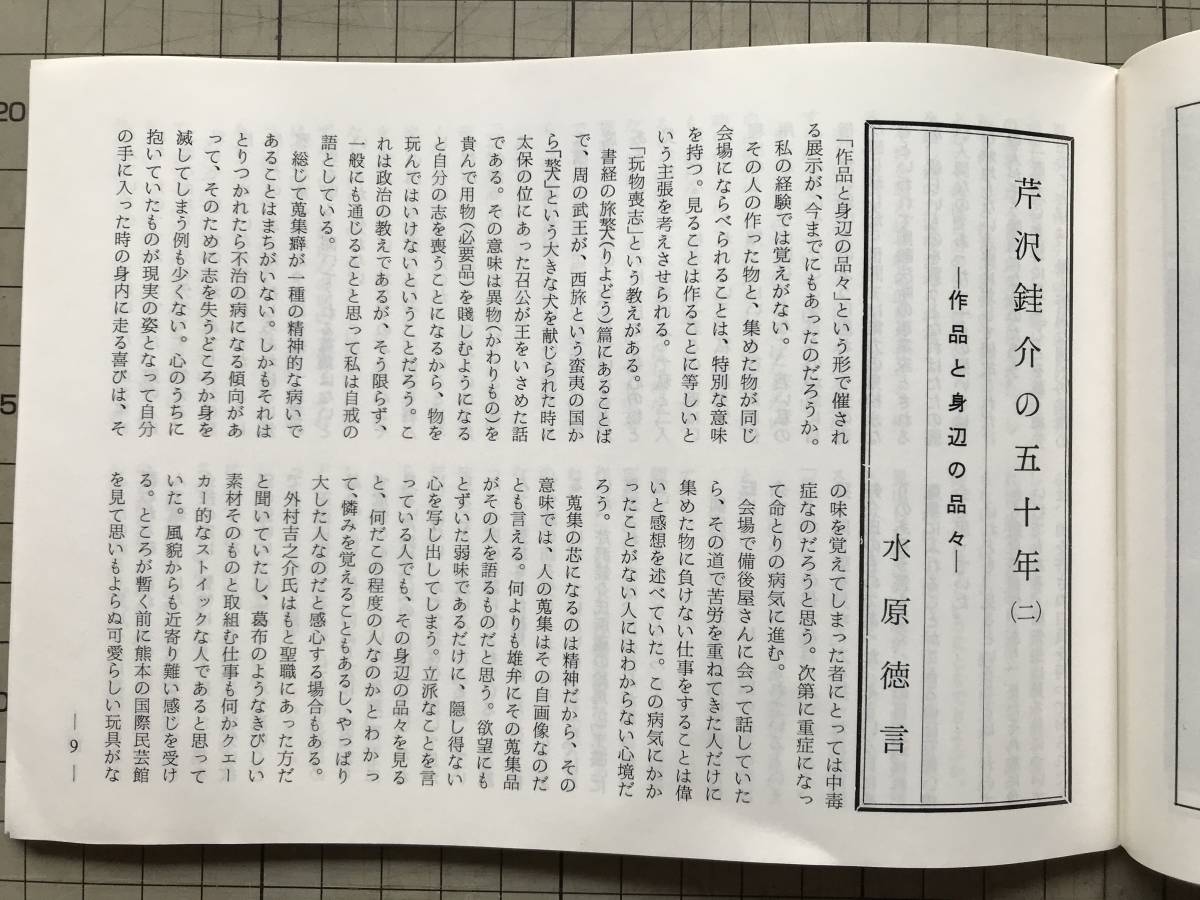 芹沢銈介の五十年(二)
―作品と身辺の品々―
水原徳言
「作品と身辺の品々」という形で催され
る展示が、今までにもあったのだろうか。
私の経験では覚えがない。
その人の作った物と、集めた物が同じ
会場にならべられることは、特別な意味
を持つ。見ることは作ることに等しいと
いう主張を考えさせられる。
「玩物喪志」という教えがある。
書経の旅獒(りよどう)篇にあることば
で、周の武王が、西旅という蛮夷の国か
ら「獒」という大きな犬を献じられた時に
太保の位にあった召公が王をいさめた話
である。その意味は異物(かわりもの)を
貴んで用物(必要品)を賤しむようになる
と自分の志を喪うことになるから、物を
玩んではいけないということだろう。こ
れは政治の教えであるが、そう限らず、
一般にも通じることと思って私は自戒の
語としている。
総じて蒐集癖が一種の精神的な病いで
あることはまちがいない。しかもそれは
とりつかれたら不治の病になる傾向があ
って、そのために志を失うどころか身を
滅してしまう例も少くない。心のうちに
抱いていたものが現実の姿となって自分
の手に入った時の身内に走る喜びは、そ
の味を覚えてしまった者にとっては中毒
症なのだろうと思う。次第に重症になっ
て命とりの病気に進む。
会場で備後屋さんに会って話していた
ら、その道で苦労を重ねてきた人だけに
集めた物に負けない仕事をすることは偉
いと感想を述べていた。この病気にかか
ったことがない人にはわからない心境だ
ろう。
蒐集の芯になるのは精神だから、その
意味では、人の蒐集はその自画像なのだ
とも言える。何よりも雄弁にその蒐集品
がその人を語るものだと思う。欲望にも
とずいた弱味であるだけに、隠し得ない
心を写し出してしまう。立派なことを言
っている人でも、その身辺の品々を見る
と、何だこの程度の人なのかとわかっ
て、憐みを覚えることもあるし、やっぱり
大した人なのだと感心する場合もある。
外村吉之介氏はもと聖職にあった方だ
と聞いていたし、葛布のようなきびしい
素材そのものと取組む仕事も何かクェー
カー的なストイックな人であると思って
いた。風貌からも近寄り難い感じを受け
る。ところが暫く前に熊本の国際民芸館
を見て思いもよらぬ可愛らしい玩具がな
― 9 ―
20
5
0